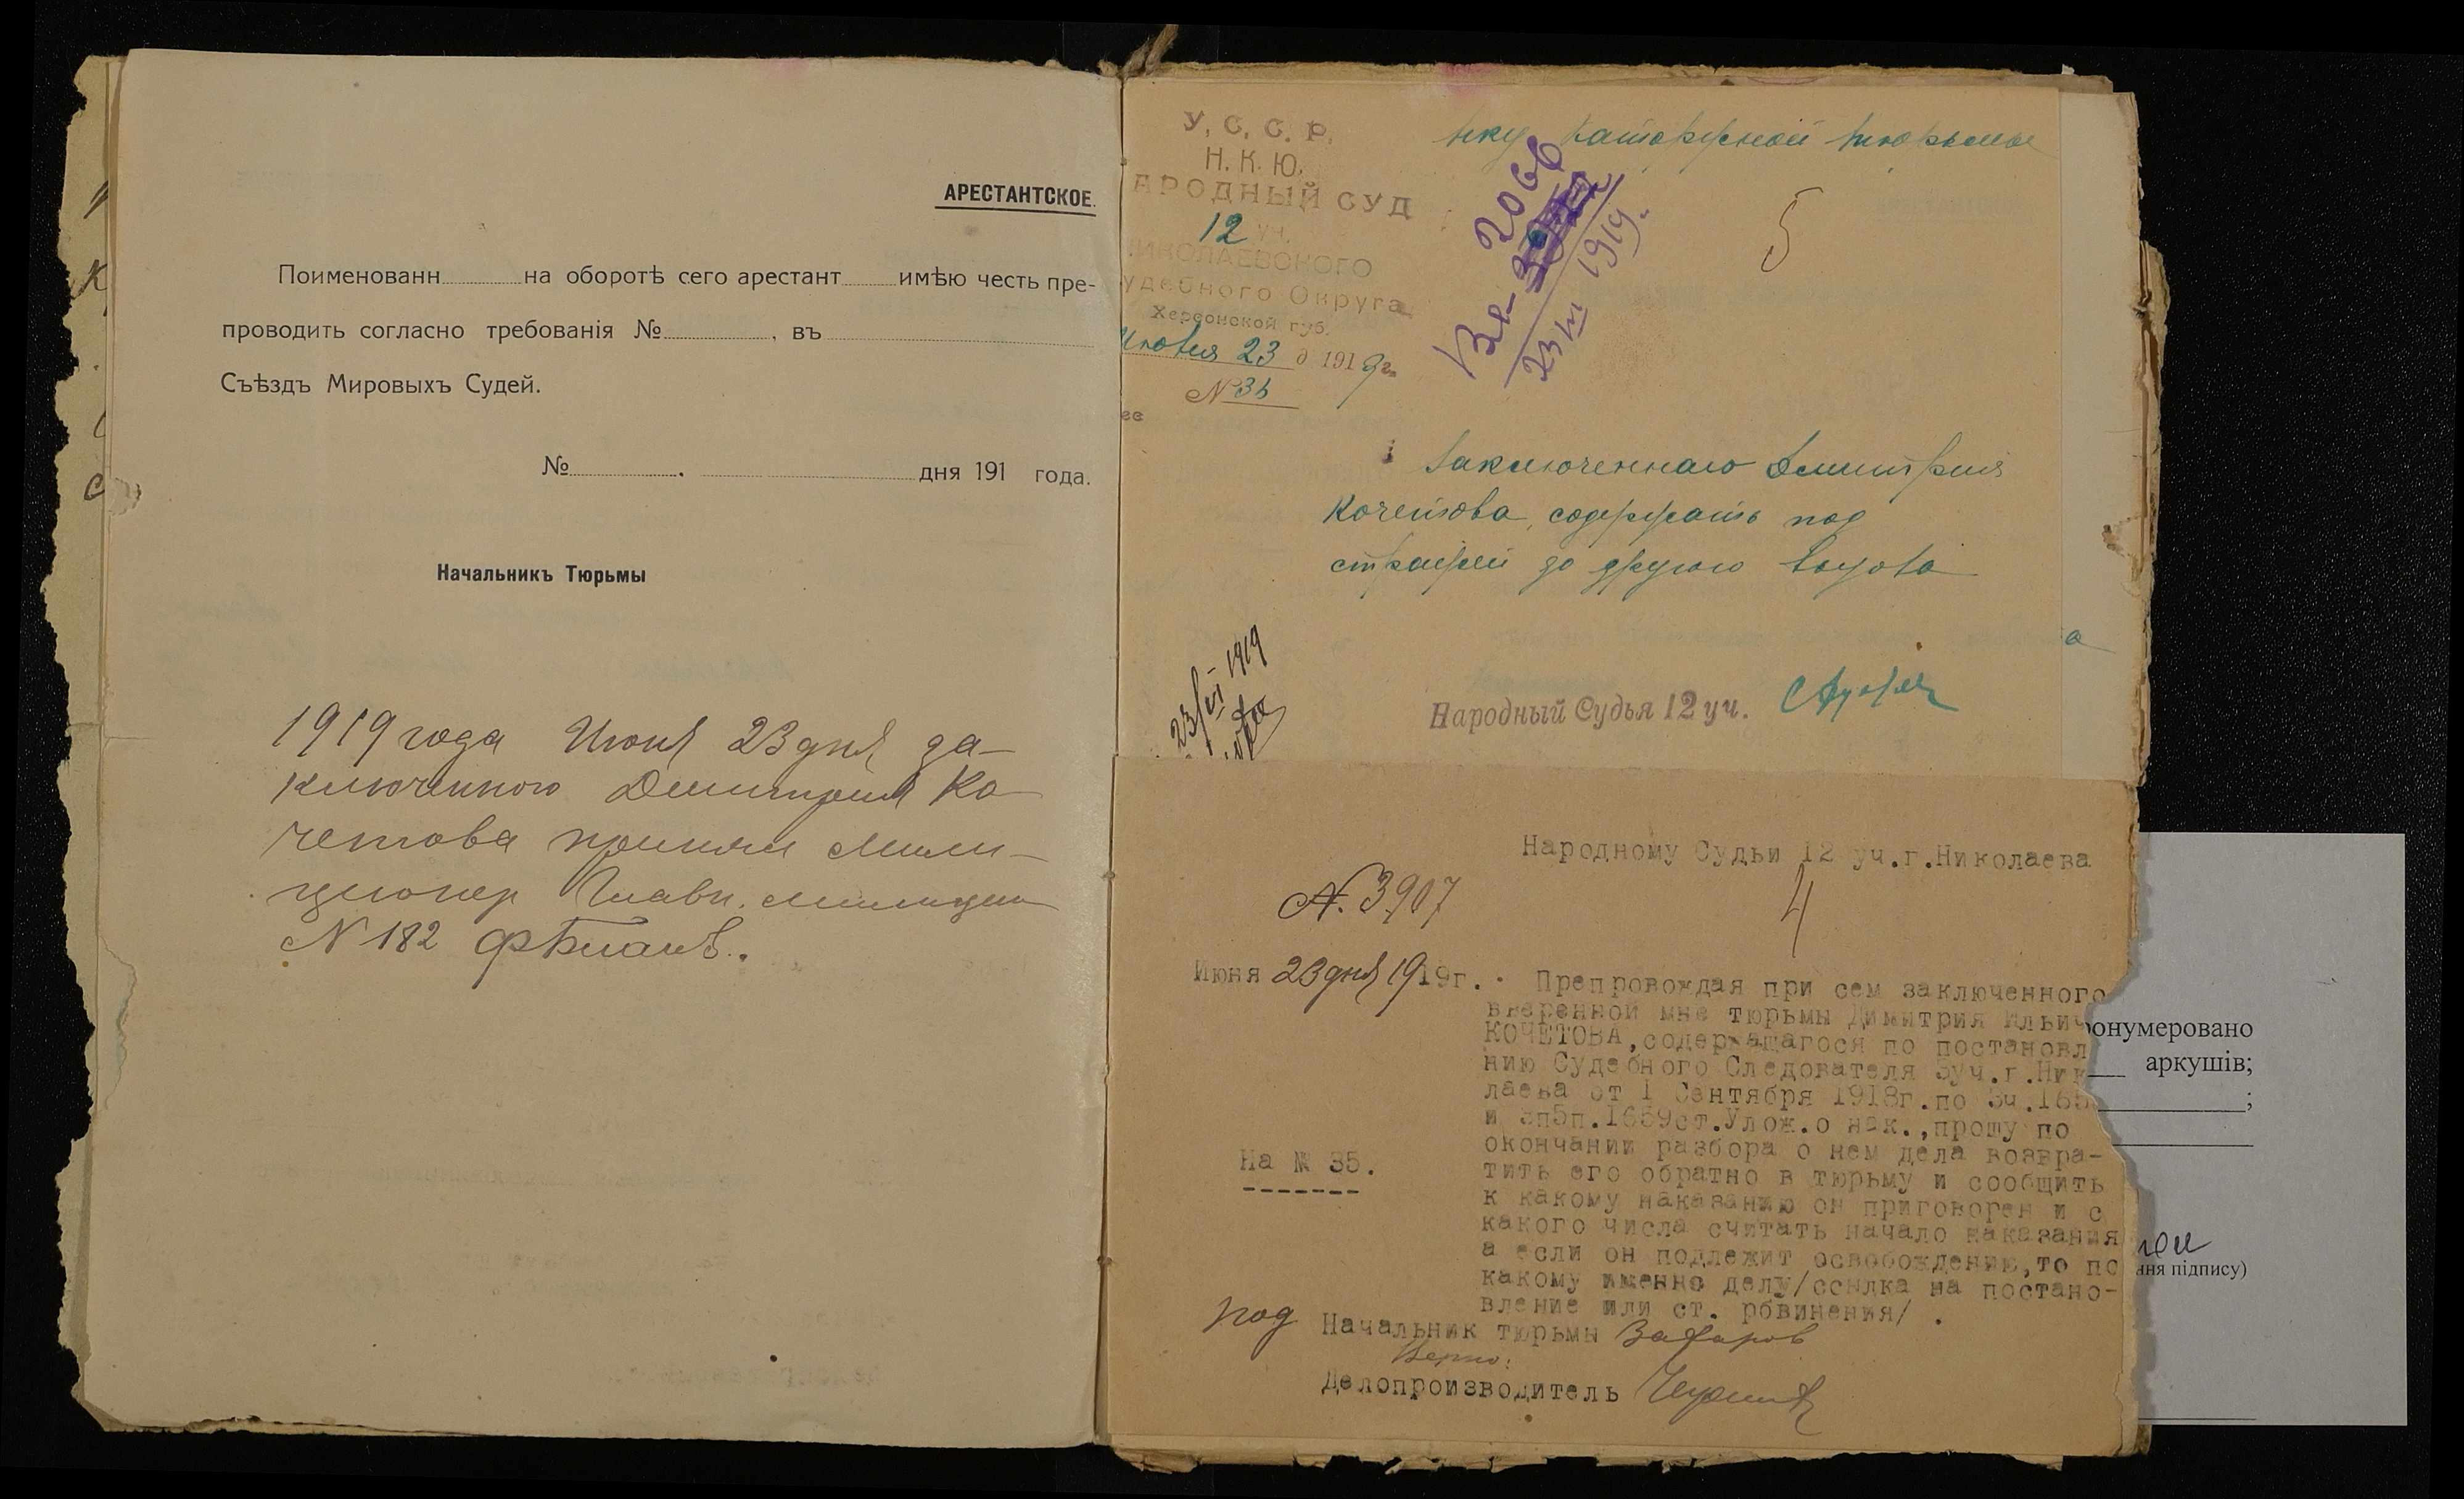 АРЕСТАНТСКОЕ.
Поименованн на оборотѣ сего арестант имѣю честь пре-
проводить согласно требованія № , въ
Съѣздъ Мировыхъ Судей.
№ . дня 191 года.
Начальникъ Тюрьмы
1919 года Июня 23 дня за-
ключенного Димитрия Ко
четова принял Мили-
ционер Главн. милиции
N 182
У. С. С. Р.
Н. К. Ю.
АРОДНЫЙ СУД
12 уч.
ИКОЛАЕВСКОГО
удебного Округа
Херсонской губ.
Июня 23 д 1919 г.
N 35
ее
нку каторжной тюрьмы
Вх- 2066
23/VI 1919.
5
Заключеннаго Дмитрия
Кочетова, содержать под
стражей до другого вызова
23/VI 1919
а
Народный Судья 12 уч.
Народному Судьи 12 уч.г.Николаева
N. 3907
4
Июня 23 дня 1919г. Препровождая при сем заключенного
вверенной мне тюрьмы Димитрия Ильич
КОЧЕТОВА,содержащагося по постановл
нию Судебного Следователя 3уч.г.Ник
лаева от I Сентября 1918г.по 3ч.165
и 3п5п.1659ст.Улож.о нак.,прошу по
окончании разбора о нем дела возвра-
На № 35.
тить его обратно в тюрьму и сообщить
к какому наказанию он приговорен и с
какого числа считать начало наказания
а если он подлежит освобождению,то по
какому именно делу/ссылка на постано-
вление или ст. рбвинения/ .
под Начальник тюрьмы Захаров
Верно:
Делопроизводитель
онумеровано
аркушів;
;
ння підпису)